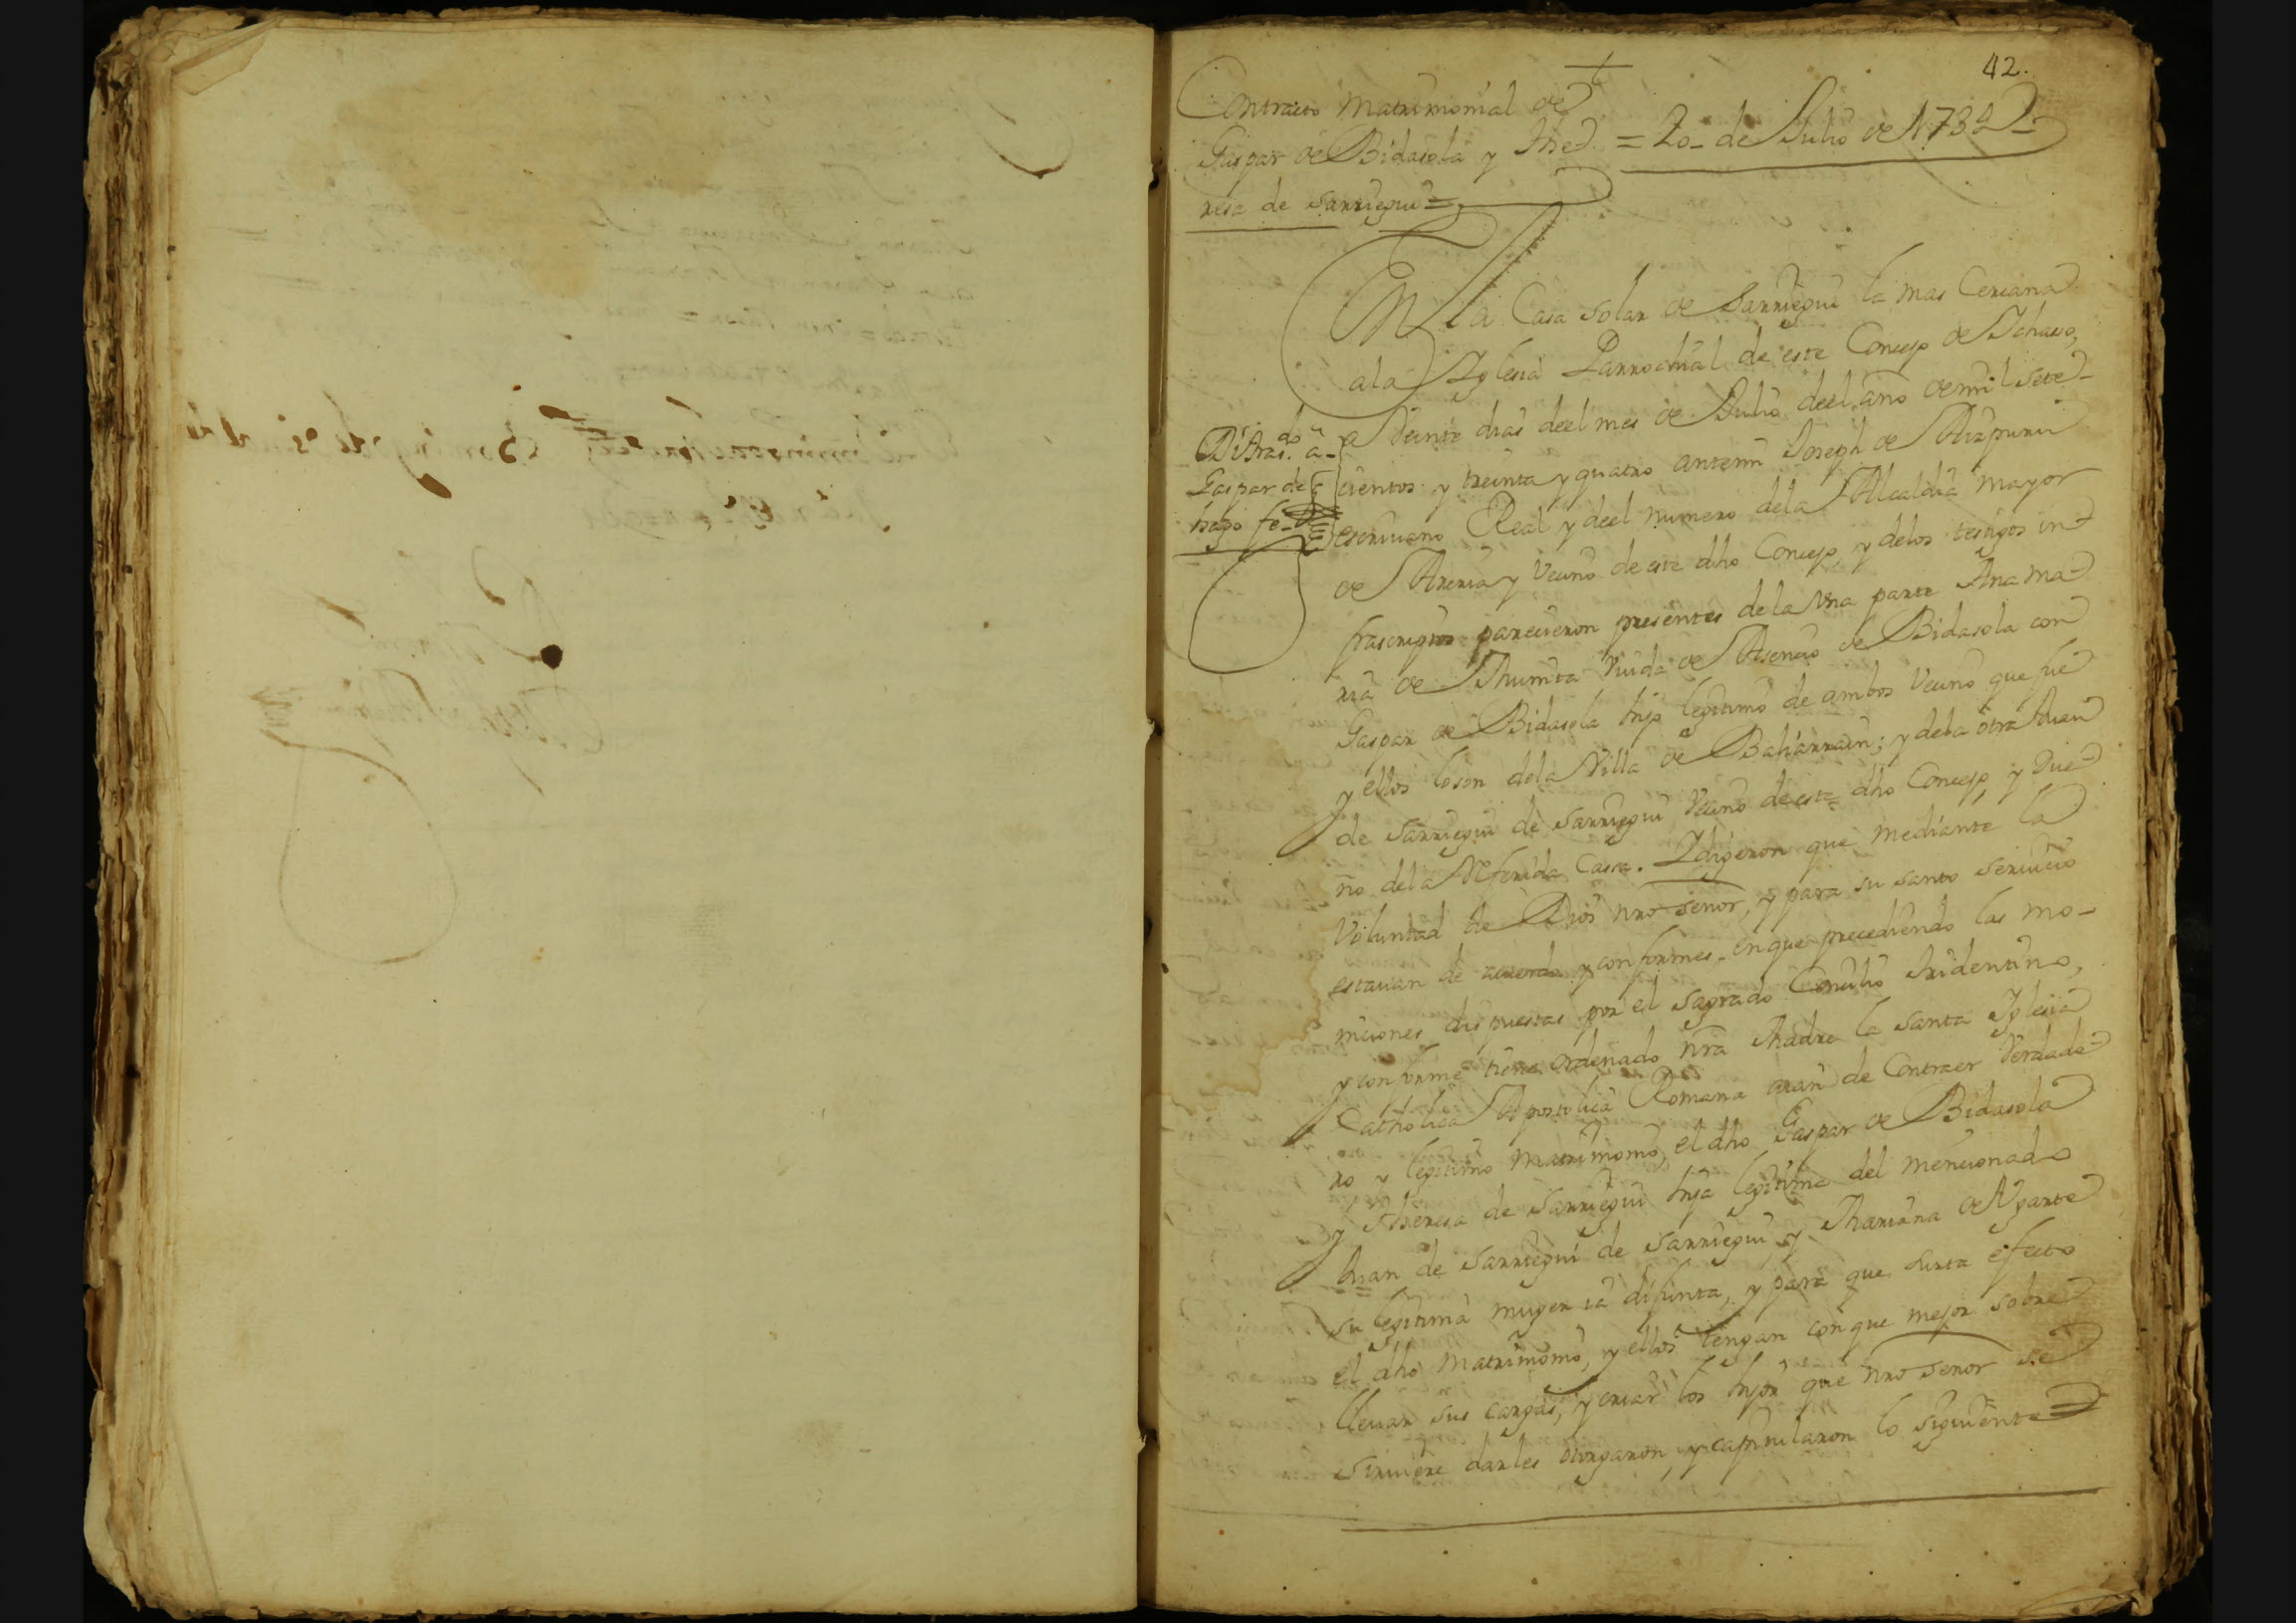 42.
Contracto Matrimonial de
Gaspar de Bidasola y The = 20 de Julio de 1734
resa de Sarriegui =
En la Casa Solar de Sarriegui la mas Cercana
a la Yglesia Parrochial de este Concejo de Ichasso,
a Veinte dias deel mes de Julio deel año de mil Sete-
cientos y treinta y quatro antemi Joseph de Aizpuru
escriuano Real y deel numero dela Alcaldia mayor
de Areria y Vecino de este dho Concejo, y delos testigos in-
frascriptos parecieron presentes dela Vna parte Ana ma-
ria de Viuda de Asencio de Bidasola con
Gaspar de Bidasola hijo legitimo de ambos Vecino que fue
y ellos lo son dela Villa de Baliarrain; y dela otra Juan
de Sarriegui de Sarriegui Vecino de este dho Concejo, y Due-
ño dela Referida Cassa. Y digeron que mediante la
Voluntad de Dios nro Señor, y para su santo seruicio
estauan de acuerdo y conformes, en que precediendo las mo-
niciones dispuestas por el Sagrado Concilio tridentino,
y conforme tiene ordenado nra Madre la Santa Yglesia
Catholica Apostolica Romana aian de Contraer Verdade-
ro y legitimo Matrimonio, el dho Gaspar de Bidasola
y Theresa de Sarriegui hija legitima del mencionado
Juan de Sarriegui de Sarriegui, y Mariana de Vgarte
su legitima muger ia difunta, y para que surta efecto
el dho matrimonio, y ellos tengan con que mejor sobre
lleuar sus cargas, y criar los hijos que nro Señor se
siruiere darles otorgaron, y capitularon lo siguiente =
Di tras.do a
Gaspar de
hago fe